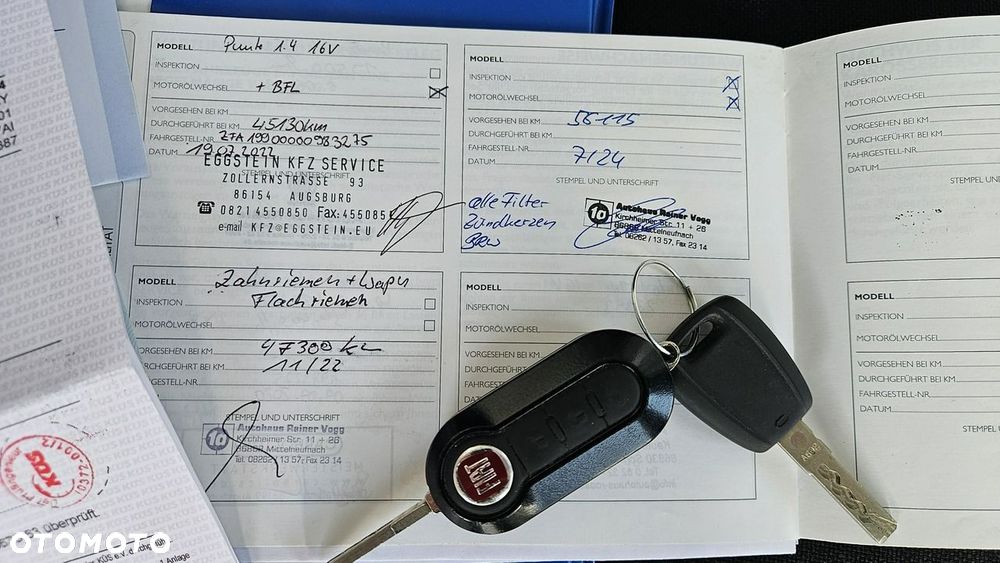 MODELL Punto 1.4 16V
INSPEKTION
MOTORÖLWECHSEL + BFL
VORGESEHEN BEI KM
DURCHGEFÜHRT BEI KM 45130km
FAHRGESTELL-NR. ZFA19900000983275
DATUM 19.07.2022
STEMPEL UND UNTERSCHRIFT
EGGSTEIN KFZ SERVICE
ZOLLERNSTRASSE 93
86154 AUGSBURG
☎ 0821 4550850 Fax: 455085
e-mail KFZ@EGGSTEIN.EU
MODELL
INSPEKTION
MOTORÖLWECHSEL
VORGESEHEN BEI KM 56115
DURCHGEFÜHRT BEI KM
FAHRGESTELL-NR.
DATUM 7/24
STEMPEL UND UNTERSCHRIFT
alle Filter
Zündkerzen
10 Autohaus Rainer Vogg
Kirchheimer Str. 11 + 26
86868 Mittelneufnach
Tel. 08262 / 13 57, Fax 23 14
MODELL Zahnriemen + Wapu
Flachriemen
INSPEKTION
MOTORÖLWECHSEL
VORGESEHEN BEI KM 47300 km
DURCHGEFÜHRT BEI KM 11/22
FAHRGESTELL-NR.
STEMPEL UND UNTERSCHRIFT
10 Autohaus Rainer Vogg
Kirchheimer Str. 11 + 26
86868 Mittelneufnach
Tel. 08262 / 13 57, Fax 23 14
MODELL
INSPEKTION
MOTORÖLWECHSEL
VORGESEHEN BEI KM
DURCHGEFÜHRT BEI
FAHRGESTELL-NR.
DATUM
MODELL
INSPEKTION
MOTORÖLWECHSEL
VORGESEHEN BEI KM
DURCHGEFÜHRT BEI KM
FAHRGESTELL-NR.
DATUM
STEMPEL UND
MODELL
INSPEKTION
MOTORÖLWECHSEL
VORGESEHEN BEI KM
DURCHGEFÜHRT BEI KM
FAHRGESTELL-NR.
DATUM
STEMPEL U
FIAT
KÜS
überprüft.
KÜS e.V. durchgeführt
Anlage
OTOMOTO